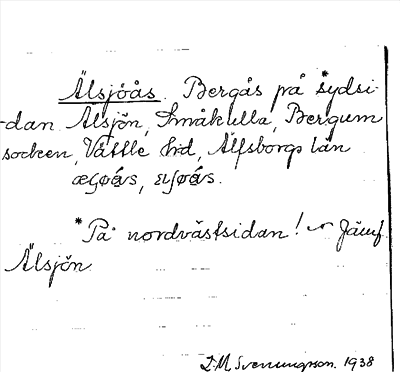 Älsjöås. Bergås på *sydsi-
dan Älsjön, Småkulla, Bergum
socken, Vättle hd, Älfsborgs län
*På nordvästsidan! ~ Jämf.
Älsjön
D.M. Svenungsson. 1938